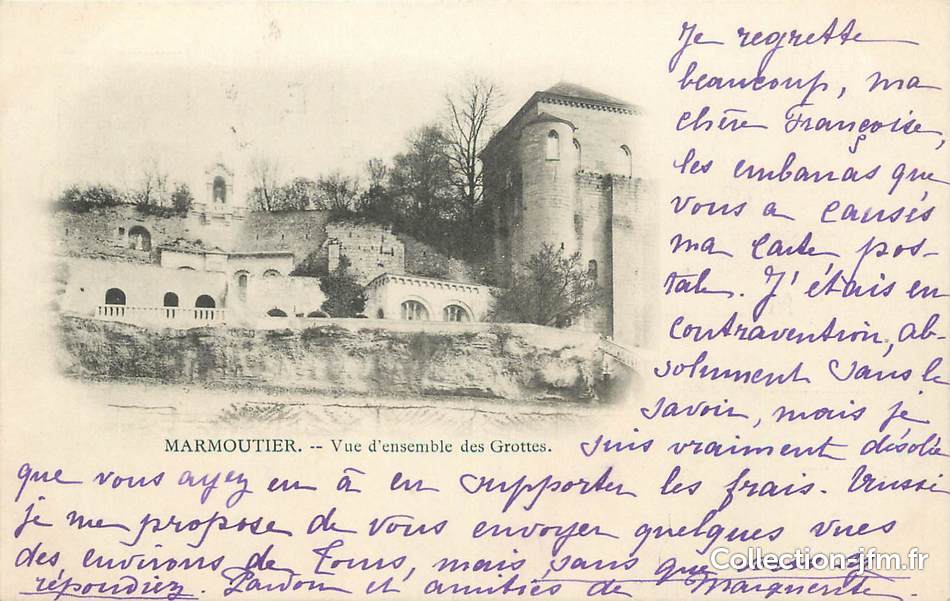 Je regrette
beaucoup, ma
chère Françoise,
les embarras que
vous a causés
ma carte pos-
tale. J'étais en
contravention, ab-
solument sans le
savoir, mais je
suis vraiment désolée
MARMOUTIER. -- Vue d'ensemble des Grottes.
que vous ayez eu à en supporter les frais. Aussi
je me propose de vous envoyer quelques vues
des environs de Tours, mais sans que
Collection-jfm.fr
répondiez. Pardon et amitiés de Marguerite.